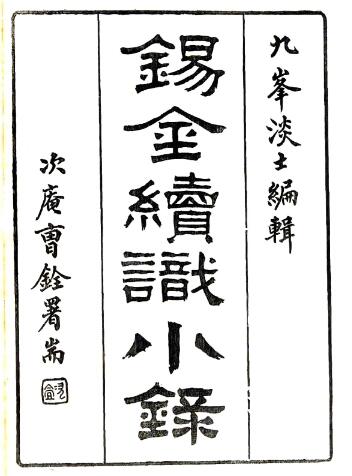 九峯淡士編輯
錫金續識小錄
次庵曹銓署耑